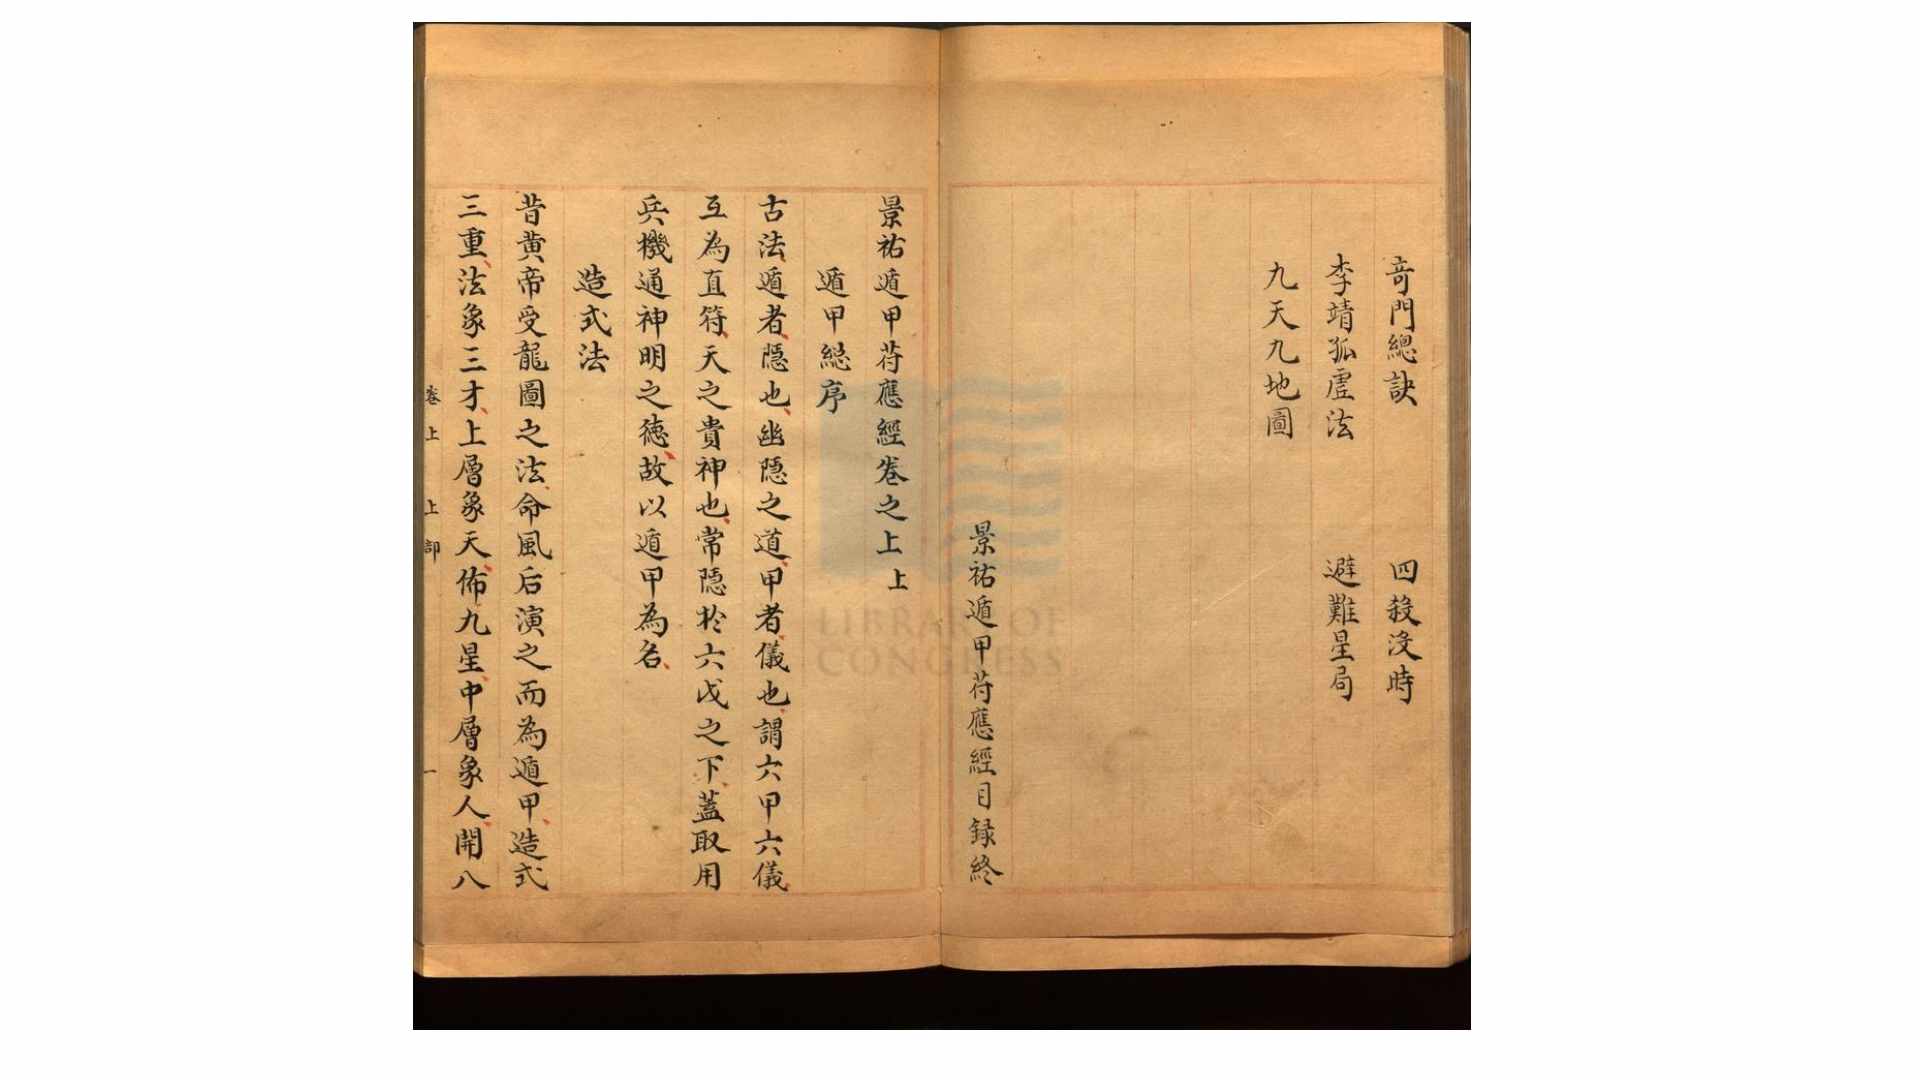 奇門總訣　四殺沒時
李靖孤虛法　避難星局
九天九地圖
景祐遁甲苻應經目録終
景祐遁甲苻應經卷之上上
遁甲総序
古法遁者隠也幽隠之道甲者儀也謂六甲六儀
互為直符天之貴神也常隠於六戊之下蓋取用
兵機通神明之徳故以遁甲為名
造式法
昔黄帝受龍圖之法命風后演之而為遁甲造式
三重法象三才上層象天佈九星中層象人開八
卷上　上部　一
LIBRARY OF
CONGRESS